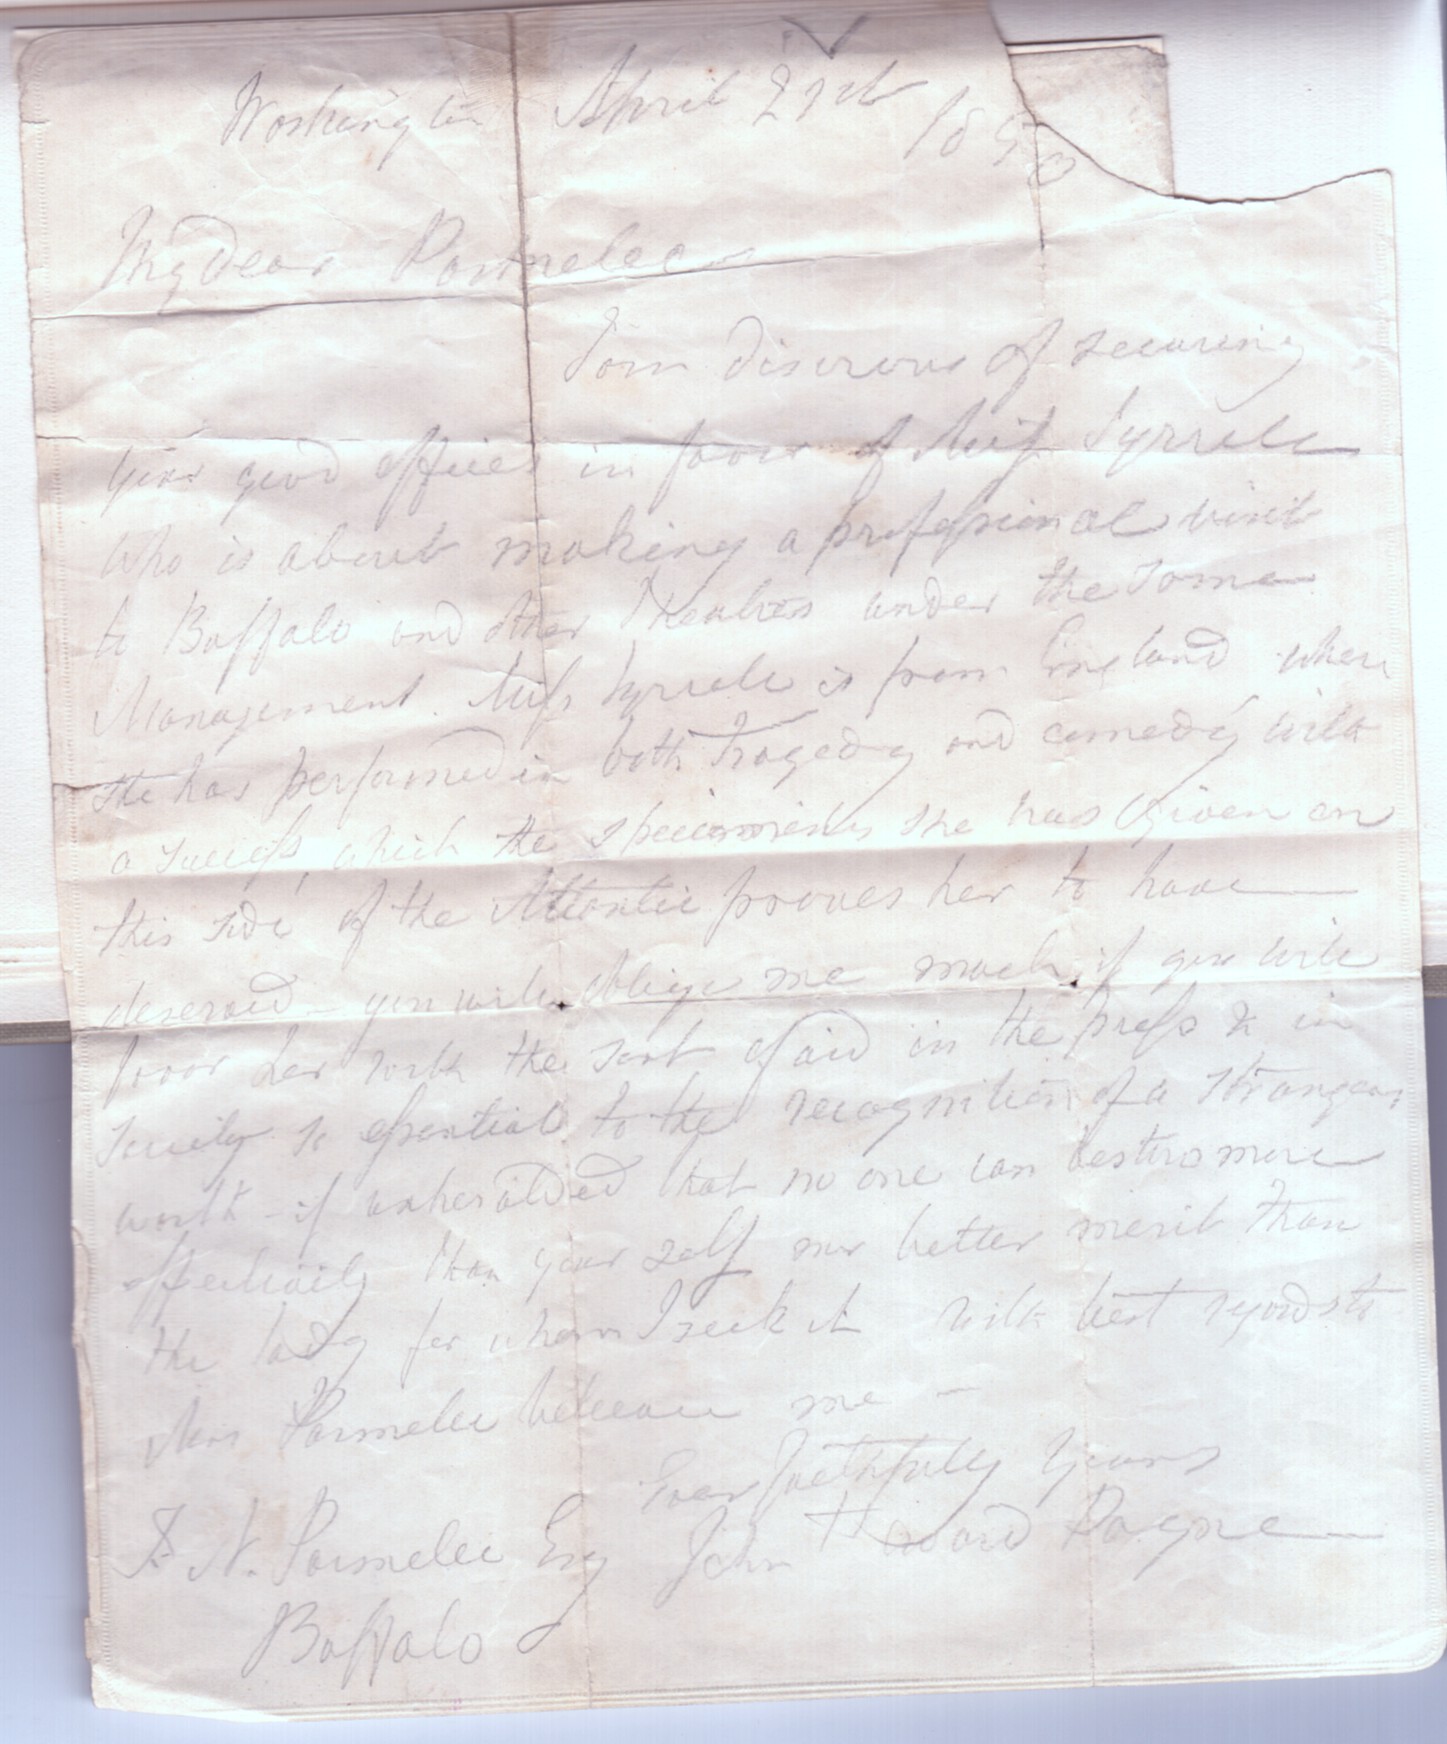 Washington April 21st 1850
My dear Parmelee
I am disirous of securing
your good offices in favor of Miss Tyrrele
who is about making a professional visit
to Buffalo and other Theatres under the same
Management. Miss Tyrrele is from England where
she has performed in both Tragedy and comedy with
a success, which the specimens she has given on
this side of the Atlantic proves her to have
deserved – you will oblige me much, if you will
favor her with the sort of aid in the press & in
society so essential to the recognition of a strangers
worth – if unheralded that no one can bestow more
effectually than your self nor better merit than
the lady for whom I seek it with best regards to
Mrs Parmelee believe me –
Ever faithfully Yours
John Howard Payne
N. Parmelee Esq
Buffalo